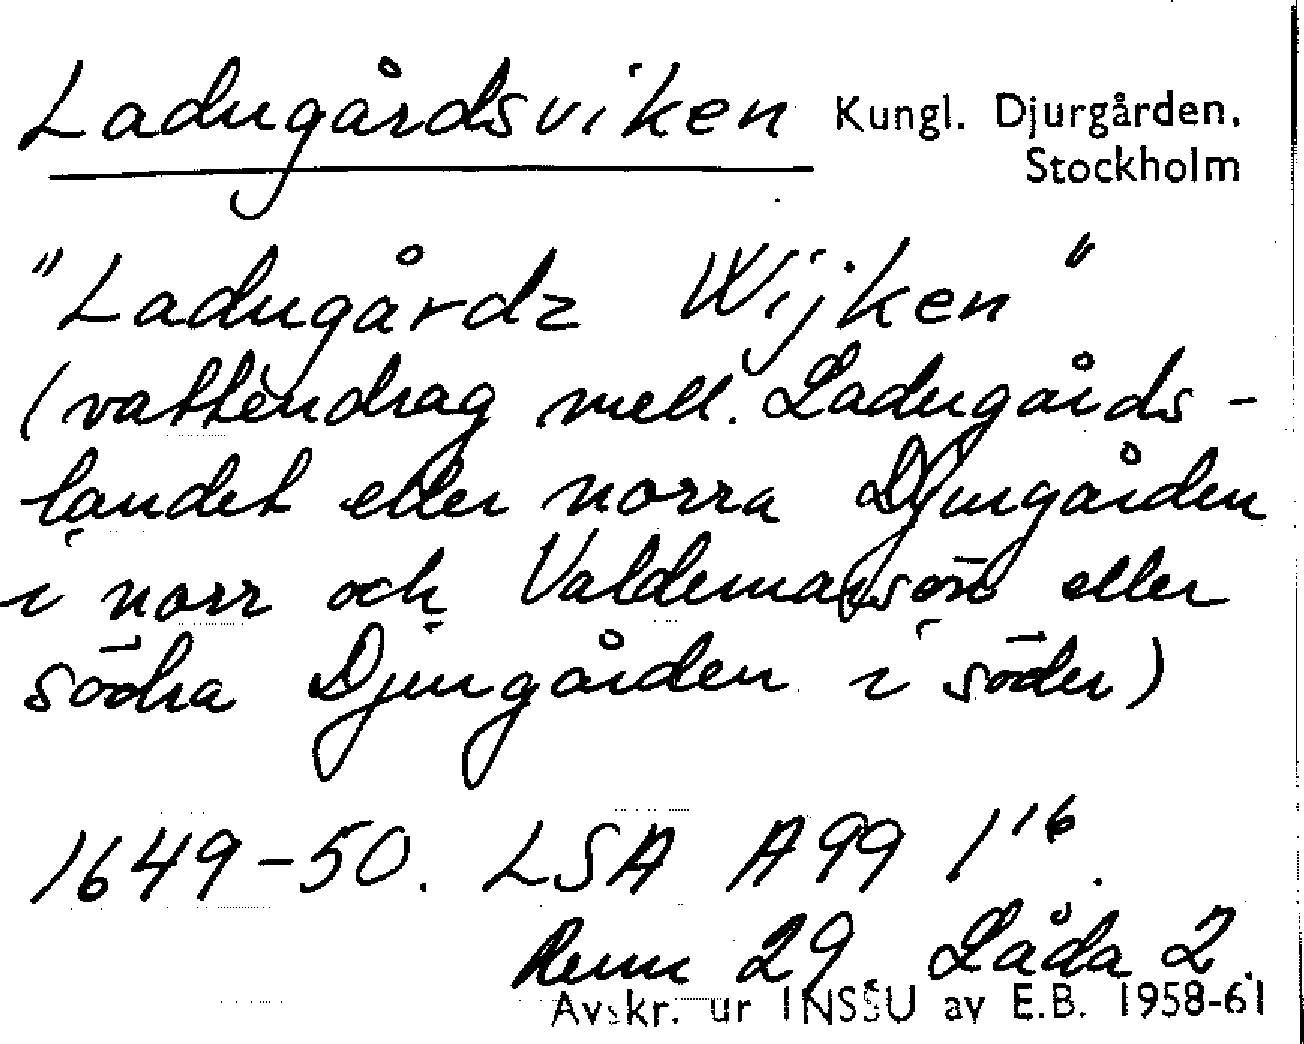 Ladugårdsviken Kungl. Djurgården,
Stockholm
"Ladugårdz Wijken"
(vattendrag mell. Ladugårds-
landet eller norra Djurgården
i norr och Valdemarsön eller
södra Djurgården i söder)
1649-50. LSA A 99 1¹⁶.
Rum 29 Låda 2.
Avskr. ur INSSU av E.B. 1958-61